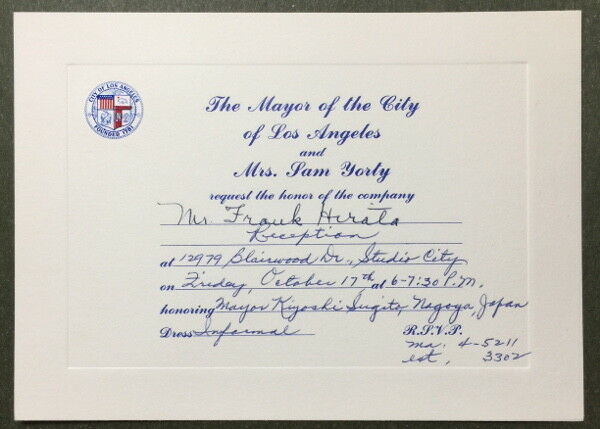 CITY OF LOS ANGELES
FOUNDED 1781
The Mayor of the City
of Los Angeles
and
Mrs. Sam Yorty
request the honor of the company
Mr. Frank Hirata
Reception
at 12979 Blairwood Dr., Studio City
on Friday, October 17th at 6-7:30 P.M.
honoring Mayor Kiyoshi Sugito, Nagoya, Japan
Dress Informal R.S.V.P.
ma. 4-5211
ext. 3302